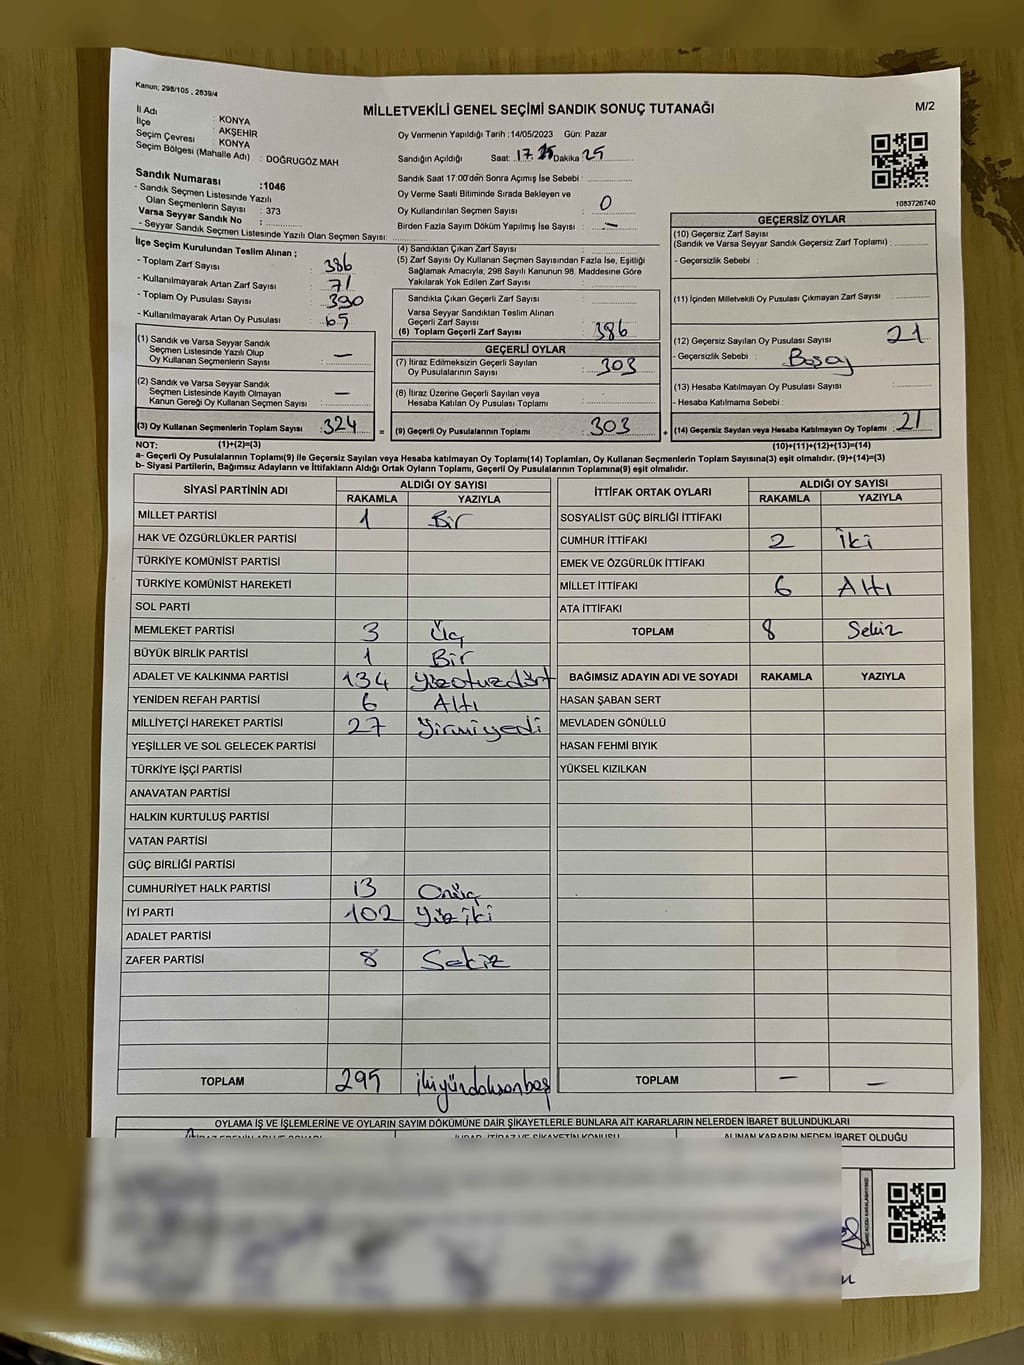 Kanun; 298/105 , 2839/4
MİLLETVEKİLİ GENEL SEÇİMİ SANDIK SONUÇ TUTANAĞI
M/2
İl Adı : KONYA
İlçe : AKŞEHİR
Seçim Çevresi : KONYA
Seçim Bölgesi (Mahalle Adı) : DOĞRUGÖZ MAH
Sandık Numarası :1046
- Sandık Seçmen Listesinde Yazılı
Olan Seçmenlerin Sayısı : 373
Varsa Seyyar Sandık No :
- Seyyar Sandık Seçmen Listesinde Yazılı Olan Seçmen Sayısı:
Oy Vermenin Yapıldığı Tarih :14/05/2023 Gün: Pazar
Sandığın Açıldığı Saat: 17 Dakika 25
Sandık Saat 17:00'den Sonra Açımış İse Sebebi :
Oy Verme Saati Bitiminde Sırada Bekleyen ve
Oy Kullandırılan Seçmen Sayısı : 0
Birden Fazla Sayım Döküm Yapılmış İse Sayısı : —
1083726740
İlçe Seçim Kurulundan Teslim Alınan ;
- Toplam Zarf Sayısı : 386
- Kullanılmayarak Artan Zarf Sayısı : 71
- Toplam Oy Pusulası Sayısı : 390
- Kullanılmayarak Artan Oy Pusulası : 65
(1) Sandık ve Varsa Seyyar Sandık
Seçmen Listesinde Yazılı Olup
Oy Kullanan Seçmenlerin Sayısı : —
(2) Sandık ve Varsa Seyyar Sandık
Seçmen Listesinde Kayıtlı Olmayan
Kanun Gereği Oy Kullanan Seçmen Sayısı : —
(3) Oy Kullanan Seçmenlerin Toplam Sayısı : 324
(4) Sandıktan Çıkan Zarf Sayısı :
(5) Zarf Sayısı Oy Kullanan Seçmen Sayısından Fazla İse, Eşitliği
Sağlamak Amacıyla; 298 Sayılı Kanunun 98. Maddesine Göre
Yakılarak Yok Edilen Zarf Sayısı :
Sandıkta Çıkan Geçerli Zarf Sayısı :
Varsa Seyyar Sandıktan Teslim Alınan
Geçerli Zarf Sayısı :
(6) Toplam Geçerli Zarf Sayısı : 386
GEÇERLİ OYLAR
(7) İtiraz Edilmeksizin Geçerli Sayılan
Oy Pusulalarının Sayısı : 303
(8) İtiraz Üzerine Geçerli Sayılan veya
Hesaba Katılan Oy Pusulası Toplamı :
= (9) Geçerli Oy Pusulalarının Toplamı : 303 +
GEÇERSİZ OYLAR
(10) Geçersiz Zarf Sayısı
(Sandık ve Varsa Seyyar Sandık Geçersiz Zarf Toplamı) :
- Geçersizlik Sebebi :
(11) İçinden Milletvekili Oy Pusulası Çıkmayan Zarf Sayısı :
(12) Geçersiz Sayılan Oy Pusulası Sayısı : 21
- Geçersizlik Sebebi :
(13) Hesaba Katılmayan Oy Pusulası Sayısı :
- Hesaba Katılmama Sebebi :
(14) Geçersiz Sayılan veya Hesaba Katılmayan Oy Toplamı : 21
NOT: (1)+(2)=(3) (10)+(11)+(12)+(13)=(14)
a- Geçerli Oy Pusulasının Toplamı(9) ile Geçersiz Sayılan veya Hesaba Katılmayan Oy Toplamı(14) Toplamları, Oy Kullanan Seçmenlerin Toplam Sayısına(3) eşit olmalıdır. (9)+(14)=(3)
b- Siyasi Partilerin, Bağımsız Adayların ve İttifakların Aldığı Ortak Oyların Toplamı, Geçerli Oy Pusulalarının Toplamına(9) eşit olmalıdır.
SİYASİ PARTİNİN ADI ALDIĞI OY SAYISI
RAKAMLA YAZIYLA
MİLLET PARTİSİ 1 Bir
HAK VE ÖZGÜRLÜKLER PARTİSİ
TÜRKİYE KOMÜNİST PARTİSİ
TÜRKİYE KOMÜNİST HAREKETİ
SOL PARTİ
MEMLEKET PARTİSİ 3 Üç
BÜYÜK BİRLİK PARTİSİ 1 Bir
ADALET VE KALKINMA PARTİSİ 134 Yüzotuzdört
YENİDEN REFAH PARTİSİ 6 Altı
MİLLİYETÇİ HAREKET PARTİSİ 27 Yirmiyedi
YEŞİLLER VE SOL GELECEK PARTİSİ
TÜRKİYE İŞÇİ PARTİSİ
ANAVATAN PARTİSİ
HALKIN KURTULUŞ PARTİSİ
VATAN PARTİSİ
GÜÇ BİRLİĞİ PARTİSİ
CUMHURİYET HALK PARTİSİ 13 Onüç
İYİ PARTİ 102 Yüziki
ADALET PARTİSİ
ZAFER PARTİSİ 8 Sekiz
TOPLAM 295 ikiyüzdoksanbeş
İTTİFAK ORTAK OYLARI ALDIĞI OY SAYISI
RAKAMLA YAZIYLA
SOSYALİST GÜÇ BİRLİĞİ İTTİFAKI
CUMHUR İTTİFAKI 2 İki
EMEK VE ÖZGÜRLÜK İTTİFAKI
MİLLET İTTİFAKI 6 Altı
ATA İTTİFAKI
TOPLAM 8 Sekiz
BAĞIMSIZ ADAYIN ADI VE SOYADI RAKAMLA YAZIYLA
HASAN ŞABAN SERT
MEVLADEN GÖNÜLLÜ
HASAN FEHMİ BIYIK
YÜKSEL KIZILKAN
TOPLAM — —
OYLAMA İŞ VE İŞLEMLERİNE VE OYLARIN SAYIM DÖKÜMÜNE DAİR ŞİKAYETLERLE BUNLARA AİT KARARLARIN NELERDEN İBARET BULUNDUKLARI
ALINAN KARARIN NEDEN İBARET OLDUĞU